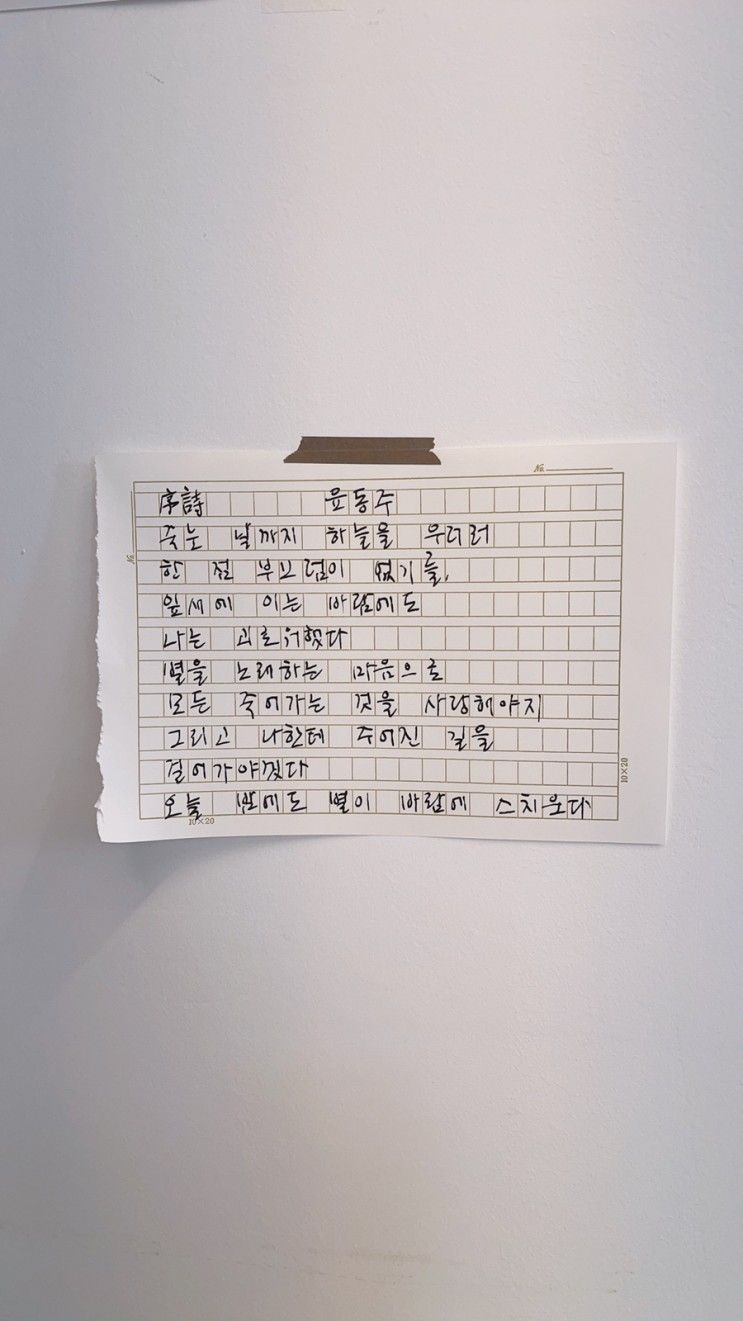 No.
序詩 윤동주
죽는 날까지 하늘을 우러러
한 점 부끄럼이 없기를,
잎새에 이는 바람에도
나는 괴로워했다
별을 노래하는 마음으로
모든 죽어가는 것을 사랑해야지
그리고 나한테 주어진 길을
걸어가야겠다
오늘 밤에도 별이 바람에 스치운다
10×20
10×20
No.